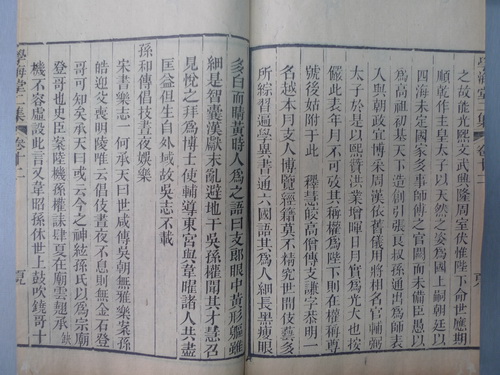 學海堂二集 卷十二
之故能光熙文武興隆周室伏惟陛下命世應期
順乾作主皇太子以天然之姿為國上嗣朝廷以
四海未定國家多事師傅之官闕而未備臣愚以
為高祖初基天下造創引張良叔孫通出為師表
入與朝政宜博采周漢依舊儀用將相名官輔弼
太子於是以光贊洪業增暉日月實為光大也按
儼此表年月不可攷其稱權為陛下則在權稱尊
號後姑附于此　釋慧皎高僧傳支謙字恭明一
名越本月支人博覽經籍莫不精究世間伎藝多
所綜習遍學異書通六國語其為人細長黑瘦眼
多白而睛黃時人為之語曰支郎眼中黃形軀雖
細是智囊漢獻末亂避地于吳孫權聞其才慧召
見悅之拜為博士使輔導東宮與韋曜諸人共盡
匡益但生自外域故吳志不載
孫和傳倡技晝夜娛樂
宋書樂志一何承天曰世咸傳吳朝無雅樂案孫
皓迎父喪明陵唯云倡伎晝夜不息則無金石登
哥可知矣承天曰或云今之神絃孫氏以為宗廟
登哥也史臣案陸機孫權誄肆夏在廟雲翹承缺
機不容虛設此言又韋昭孫休世上鼓吹鐃哥十
學海堂二集 卷十二